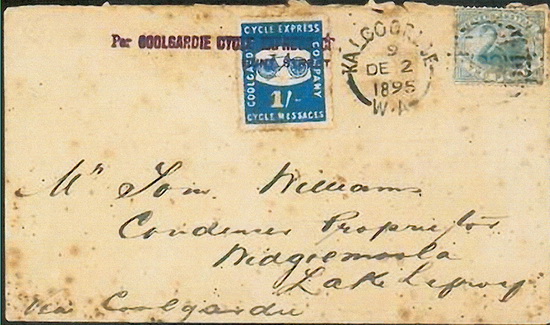 Per COOLGARDIE CYCLE EXPRESS Co
CYCLE EXPRESS
COOLGARDIE
COMPANY
1/-
CYCLE MESSAGES
KALGOORLIE
9
DE 2
1895
W.A
Mr Tom Williams
Condenser Proprietor
Lake Lefroy
via Coolgardie